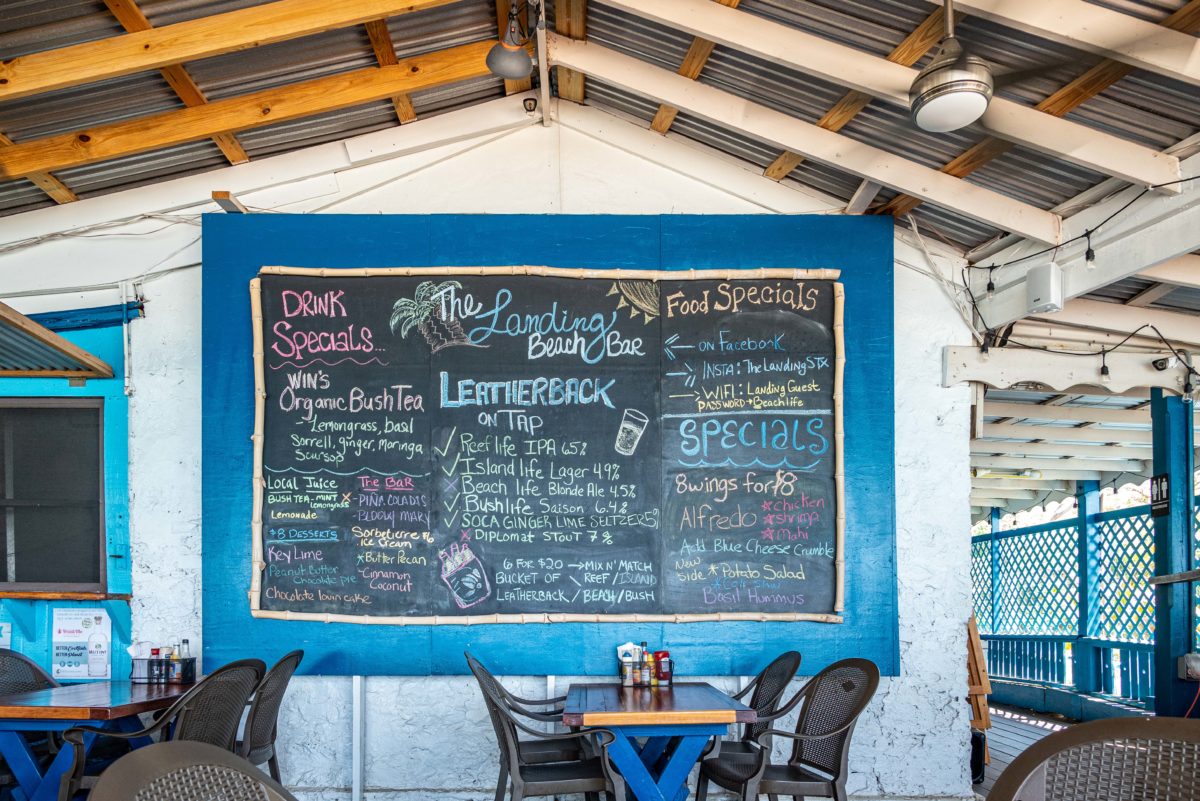 DRINK
SPECIALS...
WIN'S
ORGANIC BUSH TEA
Lemongrass, basil
Sorrell, ginger, moringa
Soursop
LOCAL JUICE
BUSH TEA - MINT
LEMONGRASS
LEMONADE
THE BAR
- PIÑA COLADAS
- BLOODY MARY
$8 DESSERTS
KEY LIME
PEANUT BUTTER
CHOCOLATE PIE
CHOCOLATE LOVIN CAKE
ICE CREAM
*BUTTER PECAN
CINNAMON
COCONUT
The Landing
Beach Bar
LEATHERBACK
ON TAP
✓ Reef life IPA 6.5%
✓ Island life Lager 4.9%
x Beach life Blonde Ale 4.5%
✓ Bushlife Saison 6.4%
✓ SOCA GINGER LIME SELTZER 5%
x Diplomat STOUT 7%
6 FOR $20 → MIX N' MATCH
BUCKET OF REEF/ISLAND
LEATHERBACK / BEACH / BUSH
FOOD SPECIALS
ON FACEBOOK
INSTA: The LandingSTX
WIFI: Landing Guest
PASSWORD → Beachlife
SPECIALS
8 wings for $8
Alfredo
*chicken
*shrimp
*Mahi
Add Blue Cheese Crumble
New
side * Potato Salad
Basil Hummus